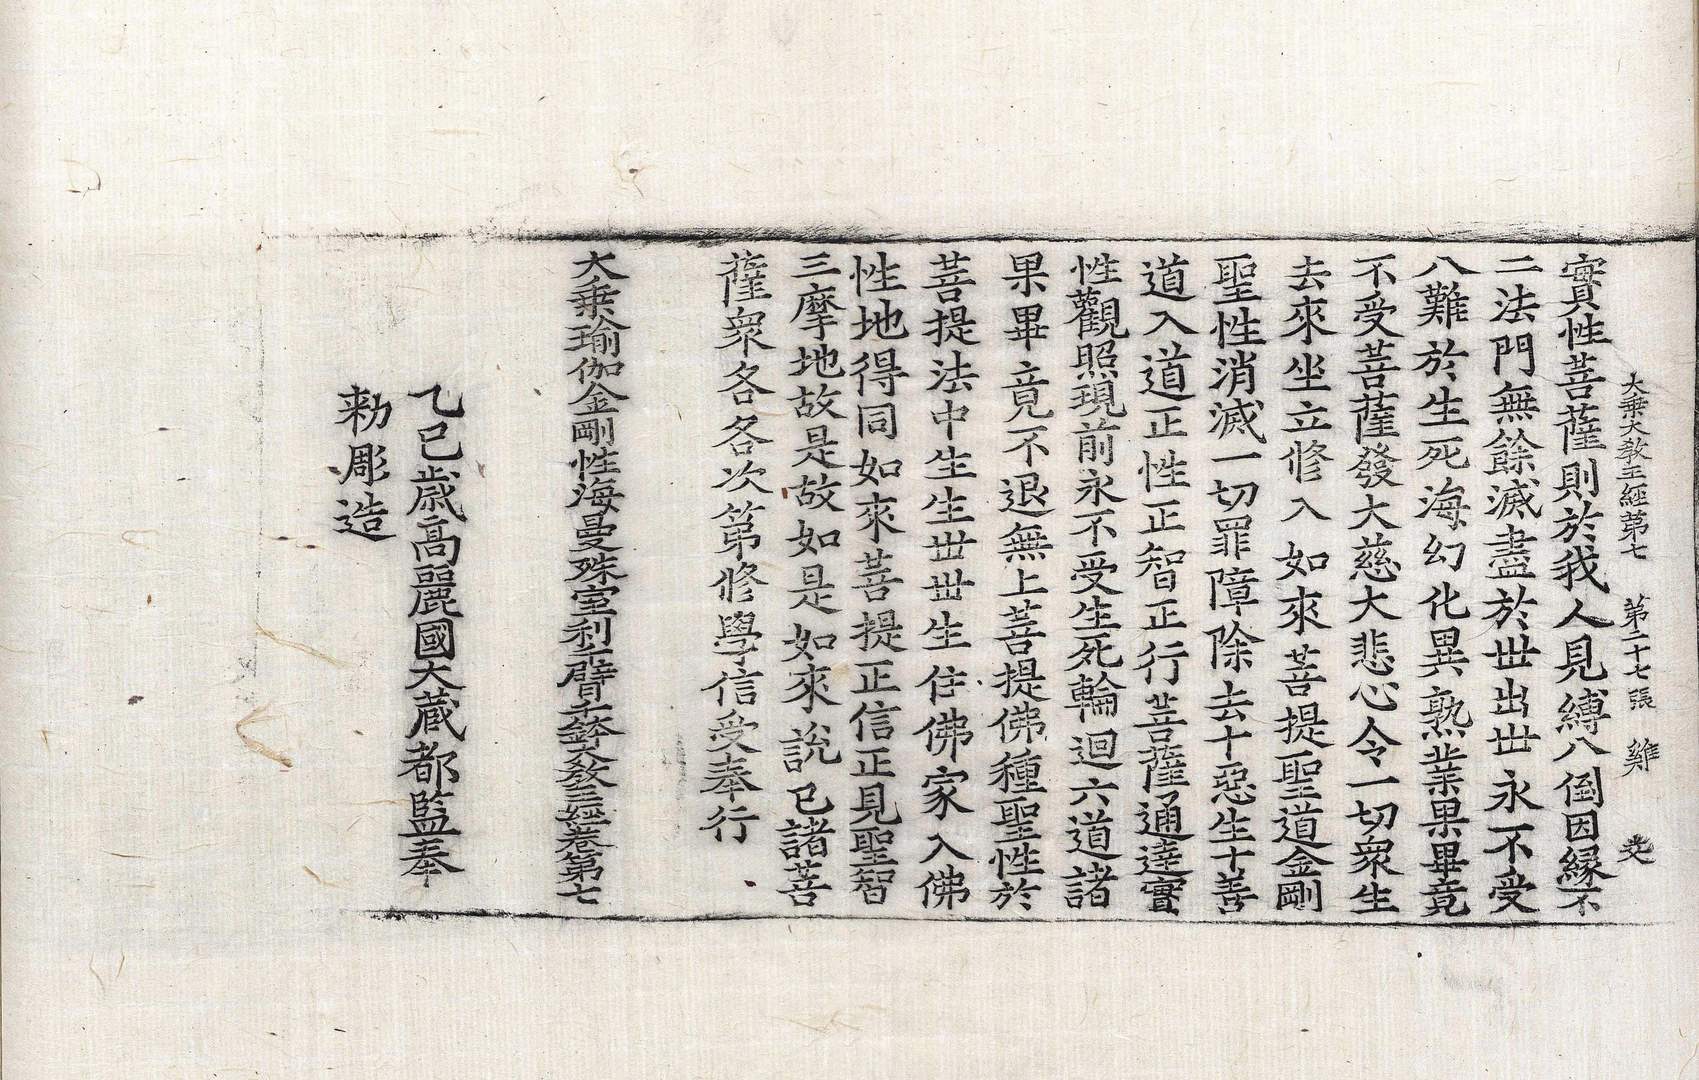 大乗大教王経第七　第二十七張　雞
實性菩薩則於我人見縛八倒因縁不
二法門無餘滅盡於世出世永不受
八難於生死海幻化異熟業果畢竟
不受菩薩發大慈大悲心令一切衆生
去來坐立修入如來菩提聖道金剛
聖性消滅一切罪障除去十惡生十善
道入道正性正智正行菩薩通達實
性觀照現前永不受生死輪迴六道諸
果畢竟不退無上菩提佛種聖性於
菩提法中生生世世生住佛家入佛
性地得同如來菩提正信正見聖智
三摩地故是故如是如來說已諸菩
薩衆各各次第修學信受奉行
大乗瑜伽金剛性海曼殊室利千臂千鉢大教王経卷第七
乙巳歲高麗國大藏都監奉
勅彫造